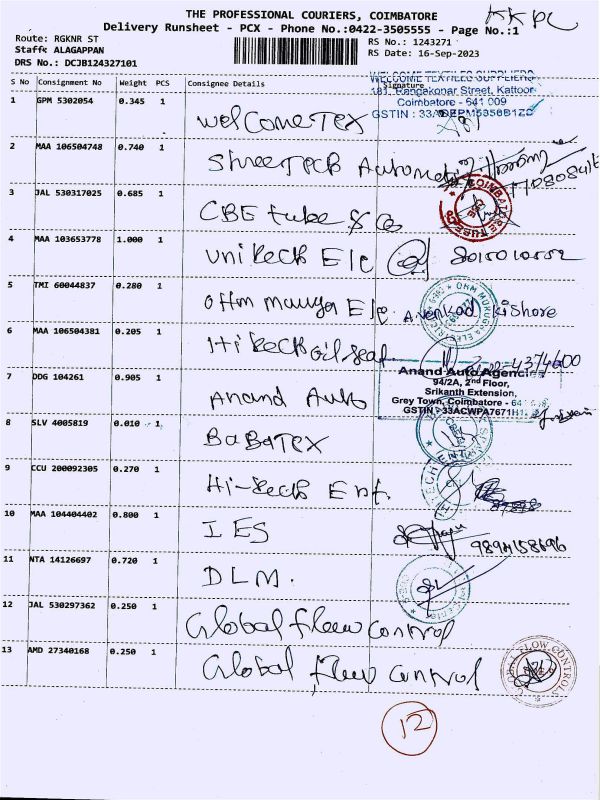 THE PROFESSIONAL COURIERS, COIMBATORE
KKPC
Delivery Runsheet - PCX - Phone No.:0422-3505555 - Page No.:1
Route: RGKNR ST
RS No.: 1243271
Staff: ALAGAPPAN
RS Date: 16-Sep-2023
DRS No.: DCJB124327101
S No Consignment No Weight PCS Consignee Details Signature
WELCOME TEXTILES SUPPLIERS
Rangakonar Street, Kattoor
Coimbatore - 641 009
1 GPM 5302054 0.345 1 Welcome Tex
2 MAA 106504748 0.740 1 Automotive
3 JAL 530317025 0.685 1 CBE tube & Co
COIMBATORE TUBE
4 MAA 103653778 1.000 1 Unitech Ele
5 TMI 60044837 0.280 1 Ohm Muruga Ele. A. Venkad Kishore
OHM MURUGAA ELECTRIC
6 MAA 106504381 0.205 1 Hi tech Oil Seal
Anand Auto Agencies
94/2A, 2nd Floor,
Srikanth Extension,
Grey Town, Coimbatore - 641
7 DDG 104261 0.905 1 Anand Auto
8 SLV 4005819 0.010 1 BaBa Tex
9 CCU 200092305 0.270 1 Hi-tech Ent.
10 MAA 104404402 0.800 1 IES
9894158696
11 NTA 14126697 0.720 1 DLM.
12 JAL 530297362 0.250 1 Global flow control
13 AMD 27340168 0.250 1 Global flow control
GLOBAL FLOW CONTROLS
12